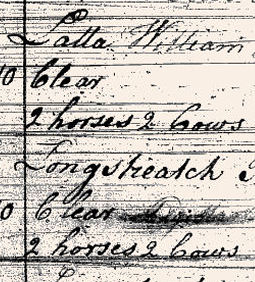 Latta William
10 Clear
2 horses 2 Cows
Longstreatch
0 Clear
2 horses 2 Cows